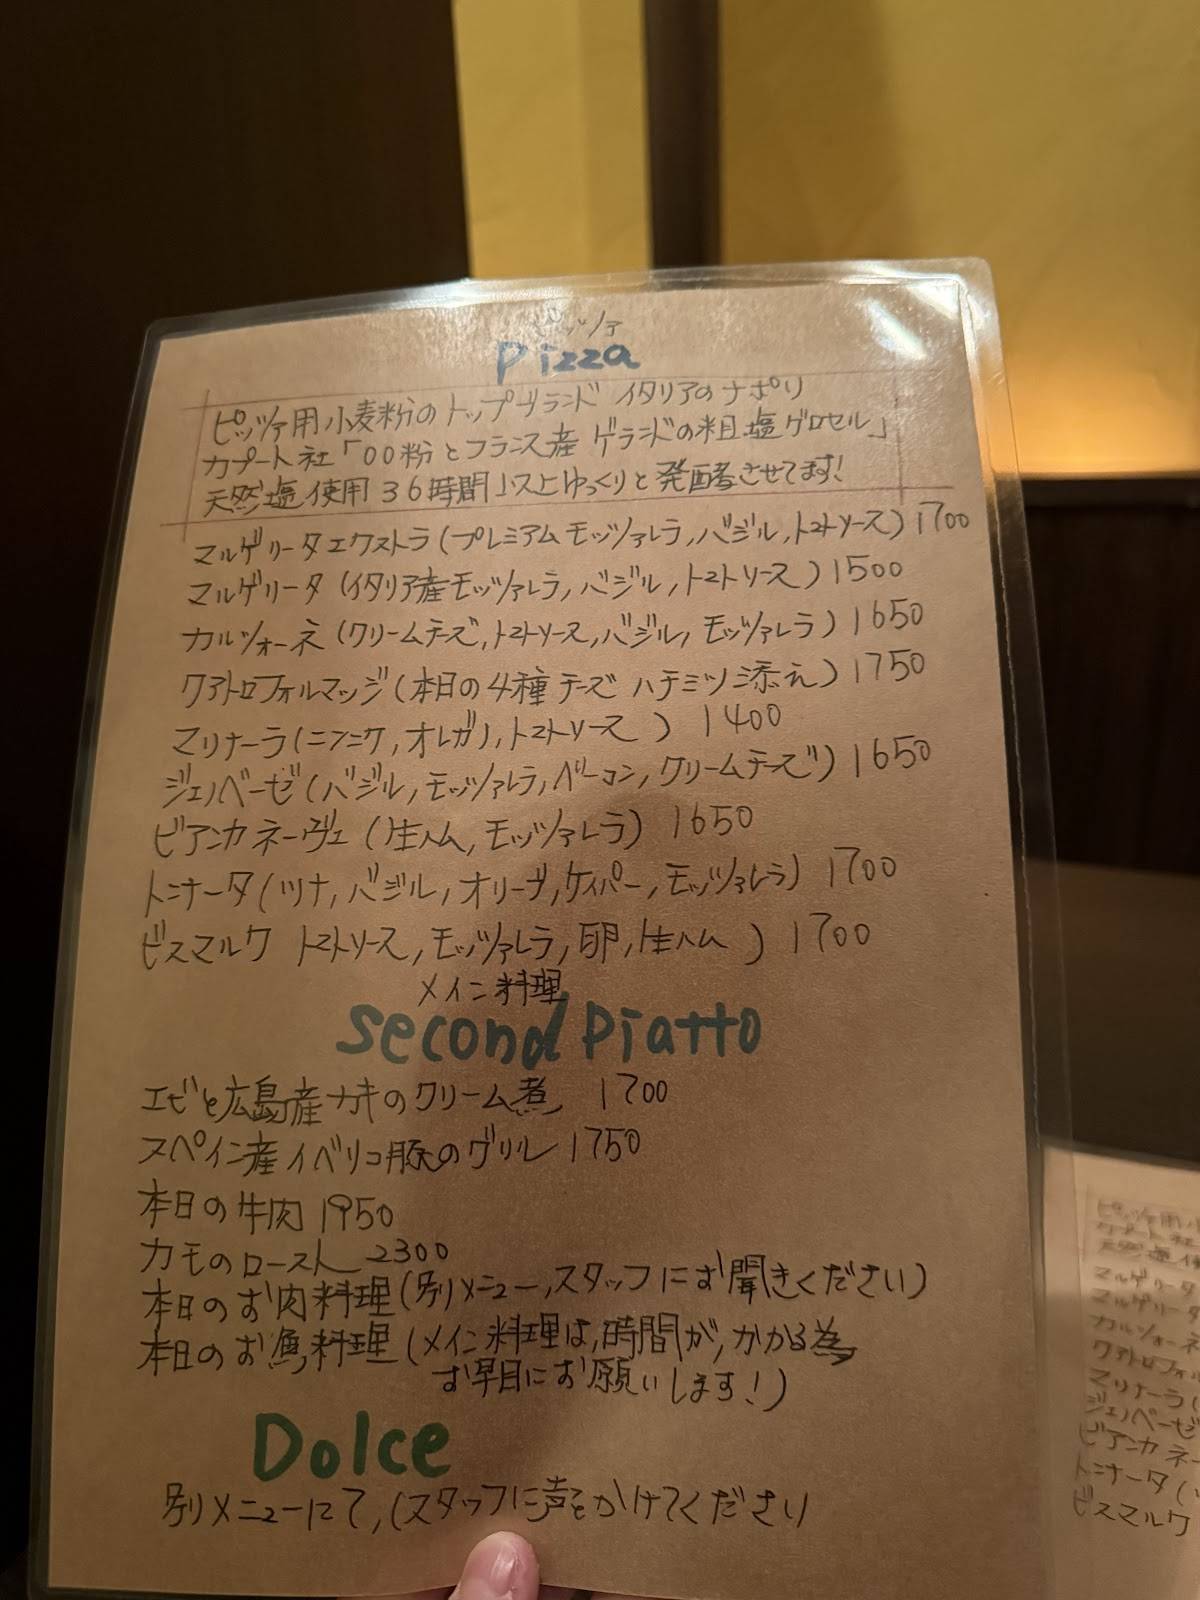 ピッツァ
Pizza
ピッツァ用小麦粉のトップブランド イタリアのナポリ
カプート社「00粉とフランス産 ゲランドの粗塩グロセル」
天然塩使用 36時間以上ゆっくりと発酵させてます!
マルゲリータエクストラ(プレミアムモッツァレラ,バジル,トマトソース)1700
マルゲリータ(イタリア産モッツァレラ,バジル,トマトソース)1500
カルツォーネ(クリームチーズ,トマトソース,バジル,モッツァレラ)1650
クアトロフォルマッジ(本日の4種チーズ ハチミツ添え)1750
マリナーラ(ニンニク,オレガノ,トマトソース )1400
ジェノベーゼ(バジル,モッツァレラ,ベーコン,クリームチーズ)1650
ビアンカネーヴェ(生ハム,モッツァレラ)1650
トンナータ(ツナ,バジル,オリーブ,ケイパー,モッツァレラ)1700
ビスマルク トマトソース,モッツァレラ,卵,生ハム )1700
メイン料理
Second Piatto
エビと広島産カキのクリーム煮 1700
スペイン産イベリコ豚のグリル1750
本日の牛肉 1950
カモのロースト 2300
本日のお肉料理(別メニュー,スタッフにお聞きください)
本日のお魚料理(メイン料理は,時間が,かかる為
お早目にお願いします!)
Dolce
別メニューにて,(スタッフに声をかけてください
ピッツァ用小
カプート社
天然塩使
マルゲリータ
マルゲリータ
カルツォーネ
クアトロフォル
マリナーラ(
ジェノベーゼ
ビアンカネー
トンナータ(
ビスマルク